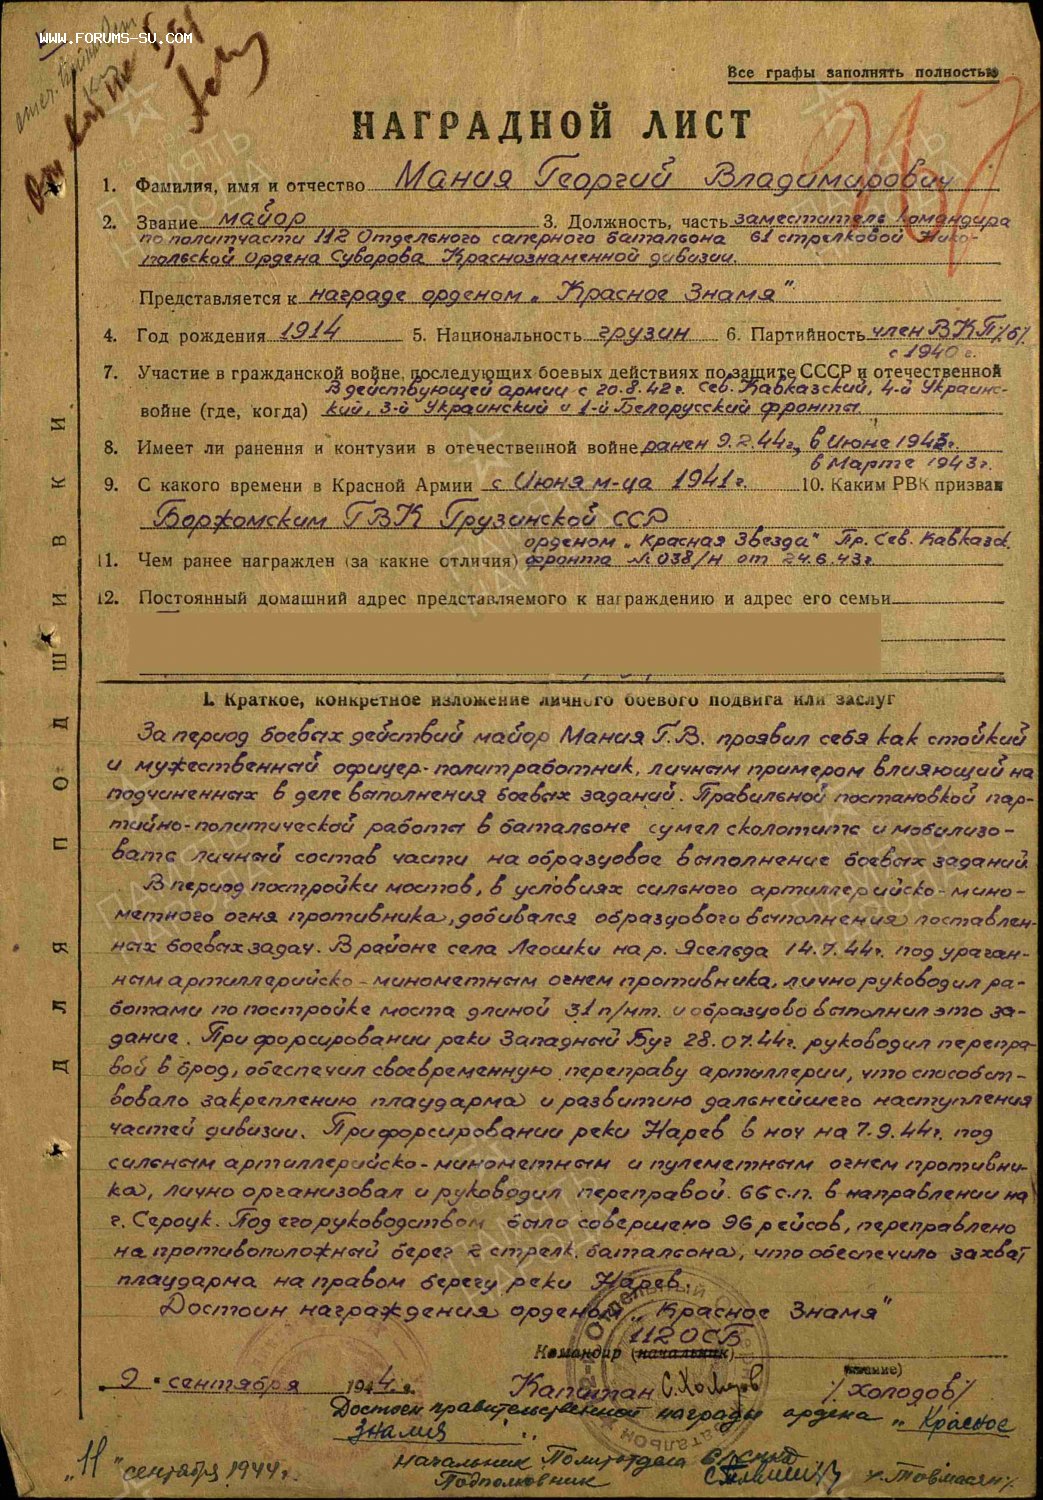 WWW.FORUMS-SU.COM
Все графы заполнять полностью
НАГРАДНОЙ ЛИСТ
1. Фамилия, имя и отчество Мания Георгий Владимирович
2. Звание майор 3. Должность, часть заместитель командира
по политчасти 112 Отдельного саперного батальона 61 стрелковой Нико-
польской ордена Суворова Краснознаменной дивизии.
Представляется к награде орденом „Красное Знамя"
4. Год рождения 1914 5. Национальность грузин 6. Партийность член ВКП/б/
с 1940 г.
7. Участие в гражданской войне, последующих боевых действиях по защите СССР и отечественной
В действующей армии с 20.8.42г. Сев. Кавказский, 4-й Украинс-
войне (где, когда) кий, 3-й Украинский и 1-й Белорусский фронты
8. Имеет ли ранения и контузии в отечественной войне ранен 9.2.44г., в Июне 1943г.
в Марте 1943г.
9. С какого времени в Красной Армии с Июня м-ца 1941г. 10. Каким РВК призван
Боржомским ГВК Грузинской ССР
орденом „Красная Звезда" Пр. Сев. Кавказск.
11. Чем ранее награжден (за какие отличия) фронта № 038/н от 24.6.43г.
12. Постоянный домашний адрес представляемого к награждению и адрес его семьи
I. Краткое, конкретное изложение личного боевого подвига или заслуг
За период боевых действий майор Мания Г.В. проявил себя как стойкий
и мужественный офицер-политработник, личным примером влияющий на
подчиненных в деле выполнения боевых заданий. Правильной постановкой пар-
тийно-политической работы в батальоне сумел сколотить и мобилизо-
вать личный состав части на образцовое выполнение боевых заданий.
В период постройки мостов, в условиях сильного артиллерийско-мино-
метного огня противника, добивался образцового выполнения поставлен-
ных боевых задач. В районе села Леошки на р. Ясельда 14.7.44г. под ураган-
ным артиллерийско-минометным огнем противника, лично руководил ра-
ботами по постройке моста длиной 31 п/мт. и образцово выполнил это за-
дание. При форсировании реки Западный Буг 28.07.44г. руководил перепра-
вой в брод, обеспечил своевременную переправу артиллерии, что способст-
вовало закреплению плацдарма и развитию дальнейшего наступления
частей дивизии. При форсировании реки Нарев в ноч на 7.9.44г. под
сильным артиллерийско-минометным и пулеметным огнем противни-
ка, лично организовал и руководил переправой 66 с.п. в направлении на
г. Сероцк. Под его руководством было совершено 96 рейсов, переправлено
на противоположный берег 2 стрелк. батальона, что обеспечило захват
плацдарма на правом берегу реки Нарев.
Достоин награждения орденом „Красное Знамя"
112 ОСБ
Командир (начальник)
(звание)
9 сентября 1944 г. Капитан /Холодов/
Достоен правительственной награды ордена „Красное
Знамя"
Начальник Политотдела 61
Подполковник /Товмасян/
„11" сентября 1944г.
ДЛЯ ПОДШИВКИ
ПАМЯТЬ НАРОДА